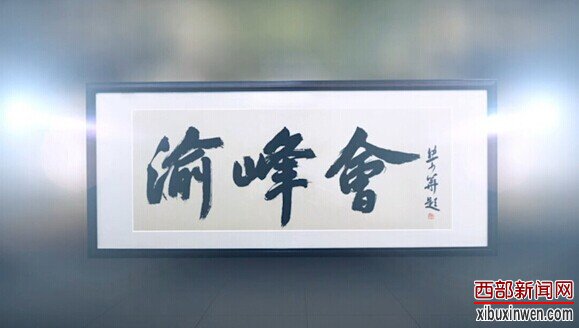 渝峰會
西部新闻网
xibuxinwen.com